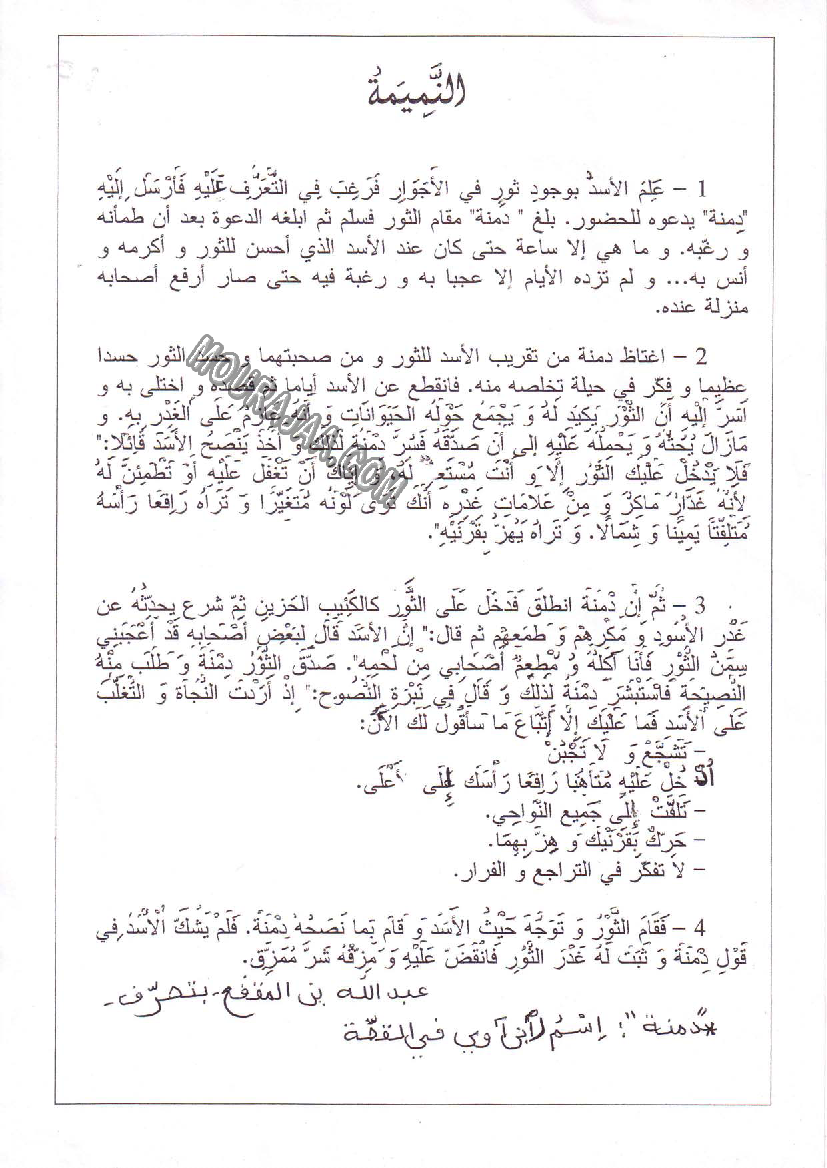 النَّمِيمَةُ
1 – عَلِمَ الأسدُ بوجودِ ثورٍ في الأجَوَارِ فَرَغِبَ فِي التَّعَرُّفِ عَلَيْهِ فَأَرْسَلَ إِلَيْهِ
"دِمنة" يدعوه للحضور. بلغ " دمنة" مقام الثور فسلم ثم ابلغه الدعوة بعد أن طمأنه
و رغّبه. و ما هي إلا ساعة حتى كان عند الأسد الذي أحسن للثور و أكرمه و
أنس به... و لم تزده الأيام إلا عجبا به و رغبة فيه حتى صار أرفع أصحابه
منزلة عنده.
2 – اغتاظ دمنة من تقريب الأسد للثور و من صحبتهما و حسد الثور حسدا
عظيما و فكّر في حيلة تخلصه منه. فانقطع عن الأسد أياما ثم قصده و اختلى به و
أَسَرَّ إليْهِ أنَّ الثَّوْرَ يَكِيدُ لَهُ وَ يَجْمَعُ حَوْلَهُ الحَيَوَانَاتِ وَ أنَّهُ عَازِمٌ عَلَى الغَدْرِ بِهِ. و
مَازَالَ يُحَثُّهُ وَ يَحْمِلُهُ عَلَيْهِ إلى أنْ صَدَّقَهُ فَسُرَّ دِمْنَةُ لِذَلِكَ وَ أَخَذَ يَنْصَحُ الأَسَدَ قَائِلًا:"
فَلَا يَدْخُلُ عَلَيْكَ الثَّوْرُ إلَا وَ أَنْتَ مُسْتَعِدٌّ لَهُ، وَ إِيَّاكَ أَنْ تَغْفَلَ عَلَيْهِ أَوْ تَطْمَئِنَّ لَهُ
لأنَّهُ غَدَّارٌ مَاكِرٌ وَ مِنْ عَلَامَاتِ غَدْرِهِ أَنَّكَ تَرَى لَوْنَهُ مُتَغَيِّرًا وَ تَرَاهُ رَافِعًا رَأْسَهُ
مُتَلَفِّتًا يَمِينًا وَ شِمَالًا. وَ تَرَاهُ يَهُزُّ بِقَرْنَيْهِ".
3 – ثُمَّ إنَّ دِمْنَةَ انطلَقَ فَدَخَلَ عَلَى الثَّوْرِ كالكَئِيبِ الحَزِينِ ثمّ شرع يحدّثُهُ عن
غَدْرِ الأُسُودِ وَ مَكْرِهِمْ وَ طَمَعِهِمْ ثم قال:" إنَّ الأسَدَ قَالَ لِبَعْضِ أَصْحَابِهِ قَدْ أَعْجَبَنِي
سِمَنُ الثَّوْرِ فَأَنَا آكُلُهُ وَ مُطْعِمٌ أَصْحَابِي مِنْ لَحْمِهِ". صَدَّقَ الثَّوْرُ دِمْنَةَ وَ طَلَبَ مِنْهُ
النَّصِيحَةَ فَاسْتَبْشَرَ دِمْنَةُ لِذَلِكَ وَ قَالَ فِي نَبْرَةِ النَّصُوحِ:" إِذْ أَرَدْتَ النَّجَاةَ وَ التَّغَلُّبَ
عَلَى الأَسَدِ فَمَا عَلَيْكَ إلَّا إتِّبَاعَ مَا سَأقُولُ لَكَ الآنَ:
– تَشَجَّعْ وَ لَا تَجْبُنْ
أُدْخُلْ عَلَيْهِ مُتَأَهِّبًا رَافِعًا رَأْسَكَ إِلَى أَعْلَى.
– تَلَفَّتْ إِلَى جَمِيعِ النَّوَاحِي.
– حَرِّكْ بِقَرْنَيْكَ وَ هِزَّ بِهِمَا.
– لا تفكّر في التراجع و الفرار.
4 – فَقَامَ الثَّوْرُ وَ تَوَجَّهَ حَيْثُ الأَسَدُ وَ قَامَ بِمَا نَصَحَهُ دِمْنَةُ. فَلَمْ يَشُكَّ الأَسَدُ فِي
قَوْلِ دِمْنَةَ وَ ثَبَتَ لَهُ غَدْرَ الثَّوْرِ فَانْقَضَّ عَلَيْهِ وَ مَزَّقَهُ شَرَّ مُمَزَّقٍ.
عبد الله بن المقفع - بتصرّف -
*"دمنة": إِسْمُ لأبن آوي في القصّة
MOURAJAA.COM